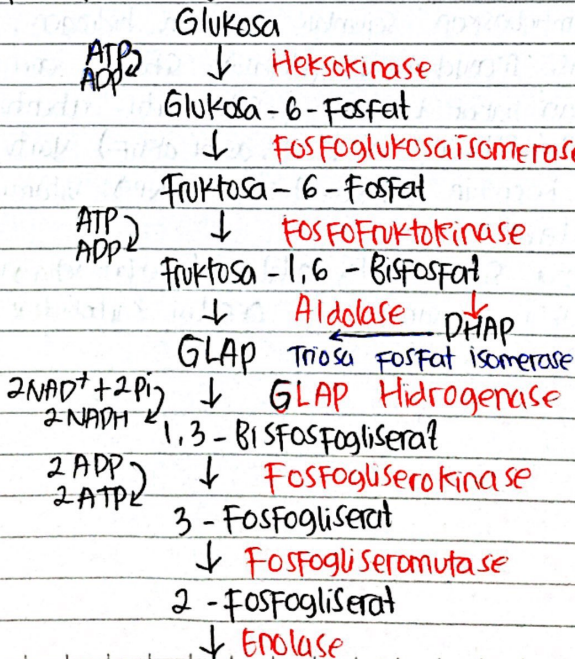 Glukosa
ATP
ADP
↓ Heksokinase
Glukosa - 6 - Fosfat
↓ Fosfoglukosaisomerase
Fruktosa - 6 - Fosfat
ATP
ADP
↓ Fosfofruktokinase
Fruktosa - 1,6 - Bisfosfat
↓ Aldolase ↓
GLAP ← DHAP
Triosa Fosfat isomerase
2NAD⁺ + 2Pi
2NADH
↓ GLAP Hidrogenase
1,3 - Bisfosfogliserat
2 ADP
2 ATP
↓ Fosfogliserokinase
3 - Fosfogliserat
↓ Fosfogliseromutase
2 - Fosfogliserat
↓ Enolase